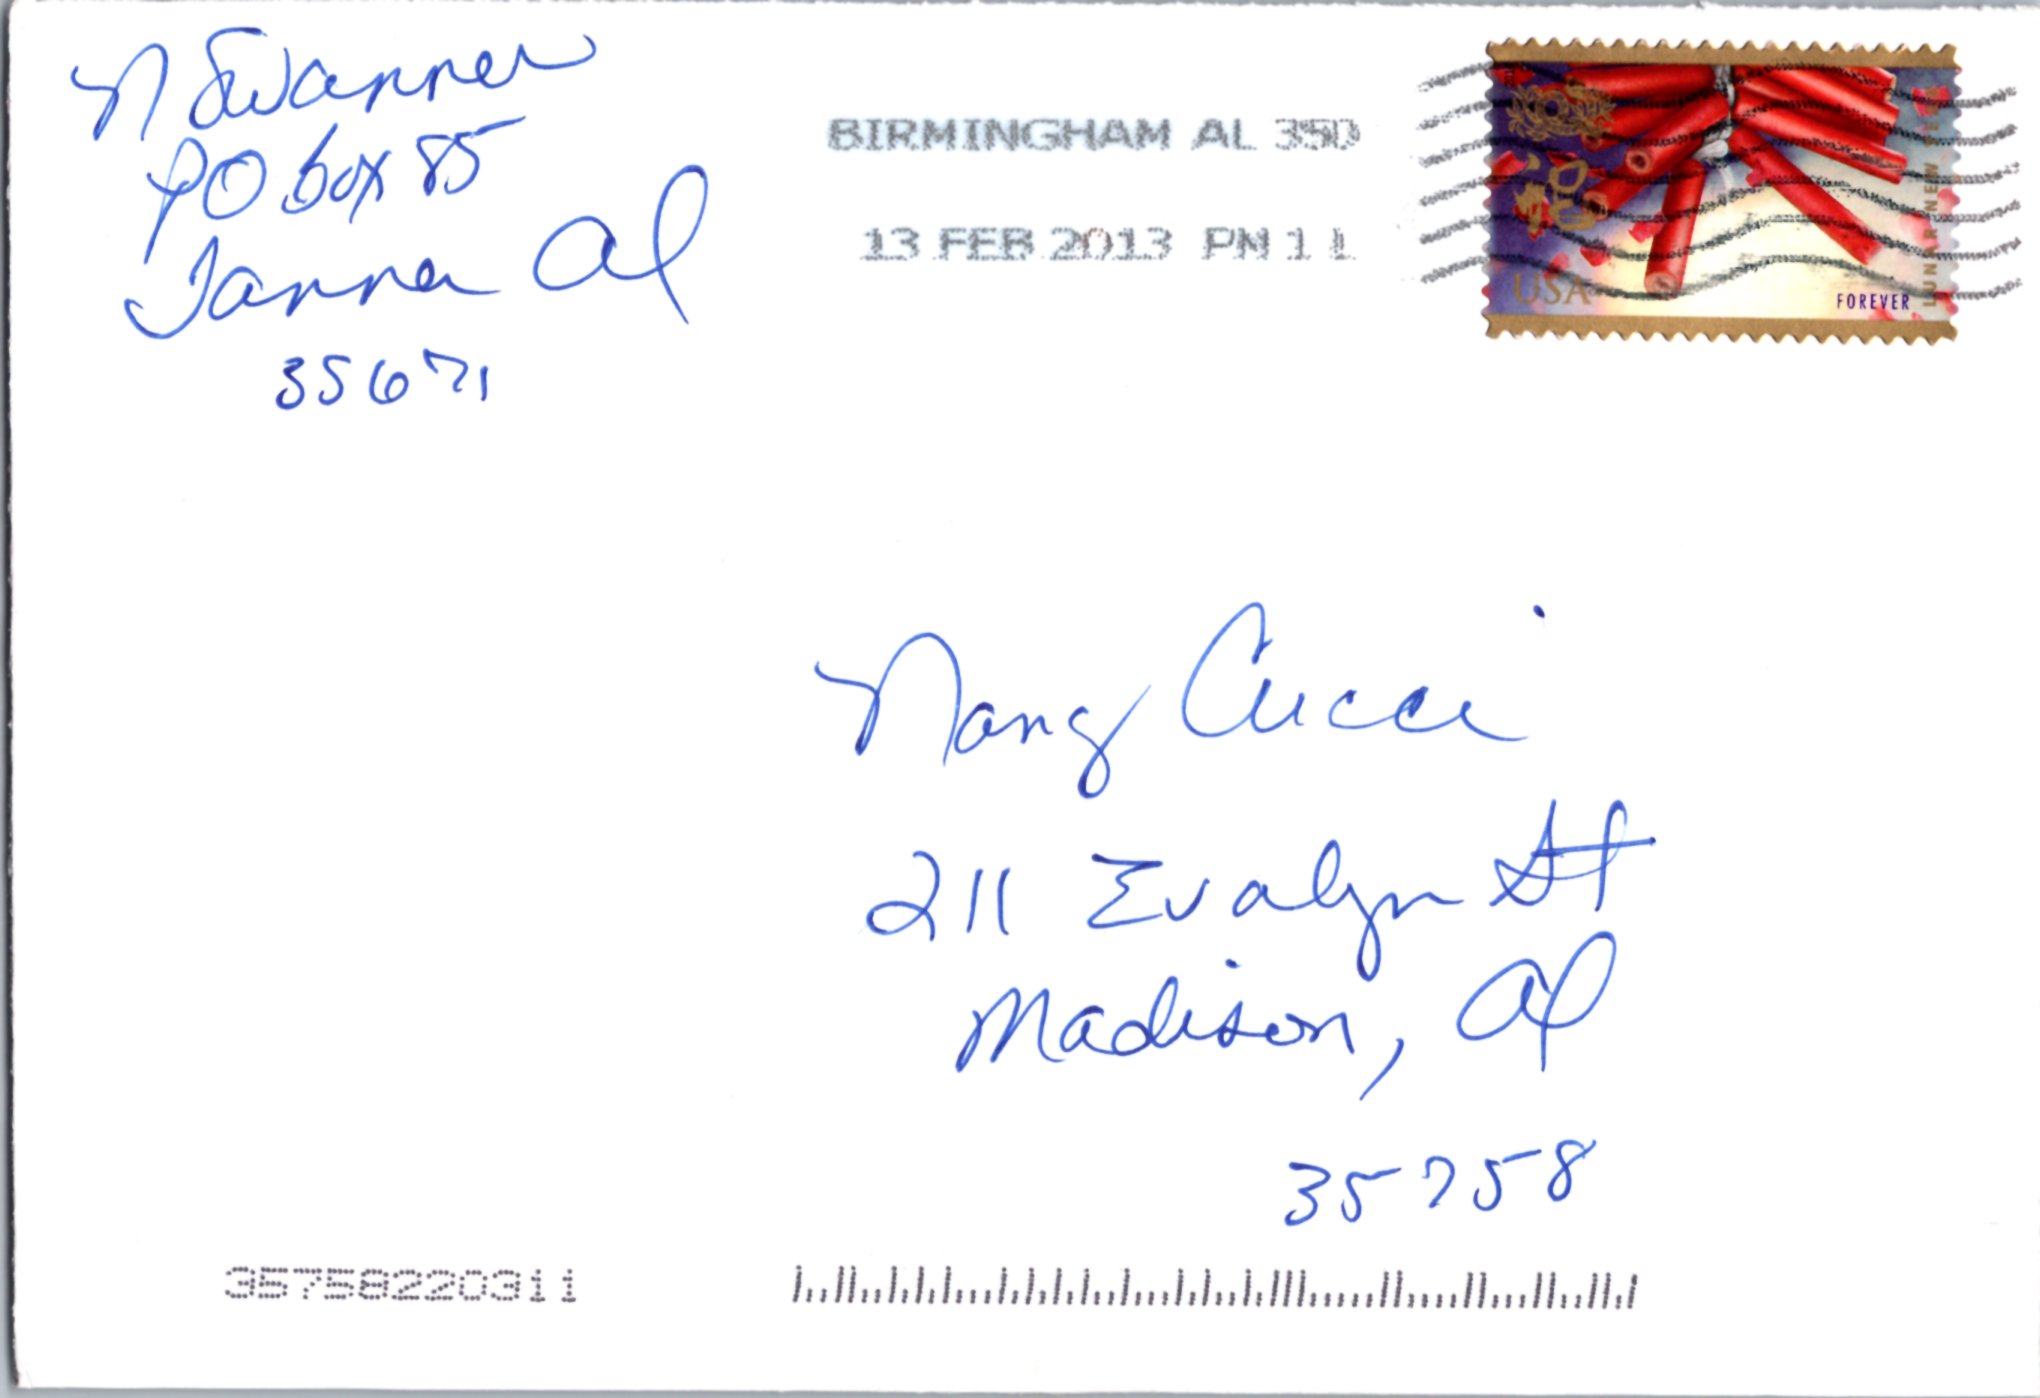 N Swanner
PO box 85
Tanner Al
35671
BIRMINGHAM AL 350
13 FEB 2013 PM 11
USA
FOREVER
LUNAR NEW YEAR
Nancy Cucci
211 Evalyn St
Madison, Al
35758
35758220311